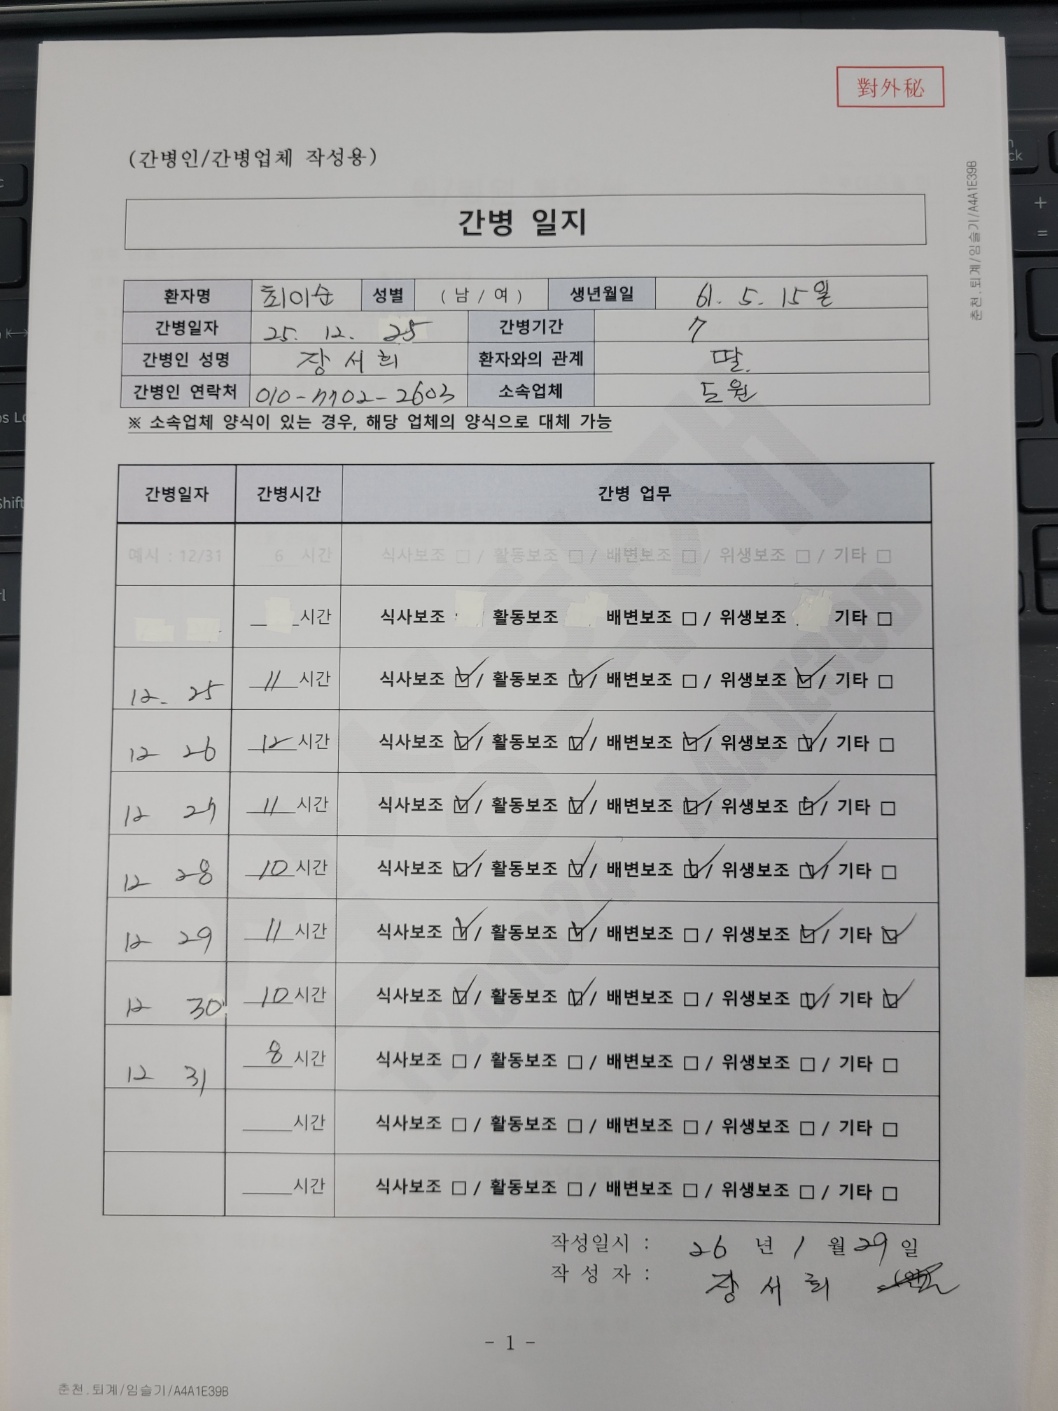 對外秘
(간병인/간병업체 작성용)
춘천.퇴계/임슬기/A4A1E39B
간병 일지
환자명 최이순 성별 ( 남 / 여 ) 생년월일 61. 5. 15일
간병일자 25. 12. 25 간병기간 7
간병인 성명 장서희 환자와의 관계 딸.
간병인 연락처 소속업체 도원
※ 소속업체 양식이 있는 경우, 해당 업체의 양식으로 대체 가능
간병일자 간병시간 간병 업무
예시 : 12/31 6 시간 식사보조 □ / 활동보조 □ / 배변보조 □ / 위생보조 □ / 기타 □
시간 식사보조 활동보조 배변보조 □ / 위생보조 기타 □
12. 25 11 시간 식사보조 ☑ / 활동보조 ☑ / 배변보조 □ / 위생보조 ☑ / 기타 □
12 26 12 시간 식사보조 ☑ / 활동보조 ☑ / 배변보조 ☑ / 위생보조 ☑ / 기타 □
12 27 11 시간 식사보조 ☑ / 활동보조 ☑ / 배변보조 ☑ / 위생보조 ☑ / 기타 □
12 28 10 시간 식사보조 ☑ / 활동보조 ☑ / 배변보조 ☑ / 위생보조 ☑ / 기타 □
12 29 11 시간 식사보조 ☑ / 활동보조 ☑ / 배변보조 □ / 위생보조 ☑ / 기타 ☑
12 30 10 시간 식사보조 ☑ / 활동보조 ☑ / 배변보조 □ / 위생보조 ☑ / 기타 ☑
12 31 8 시간 식사보조 □ / 활동보조 □ / 배변보조 □ / 위생보조 □ / 기타 □
시간 식사보조 □ / 활동보조 □ / 배변보조 □ / 위생보조 □ / 기타 □
시간 식사보조 □ / 활동보조 □ / 배변보조 □ / 위생보조 □ / 기타 □
작성일시 : 26 년 1 월 29 일
작 성 자 : 장 서 희 (인)
- 1 -
춘천.퇴계/임슬기/A4A1E39B